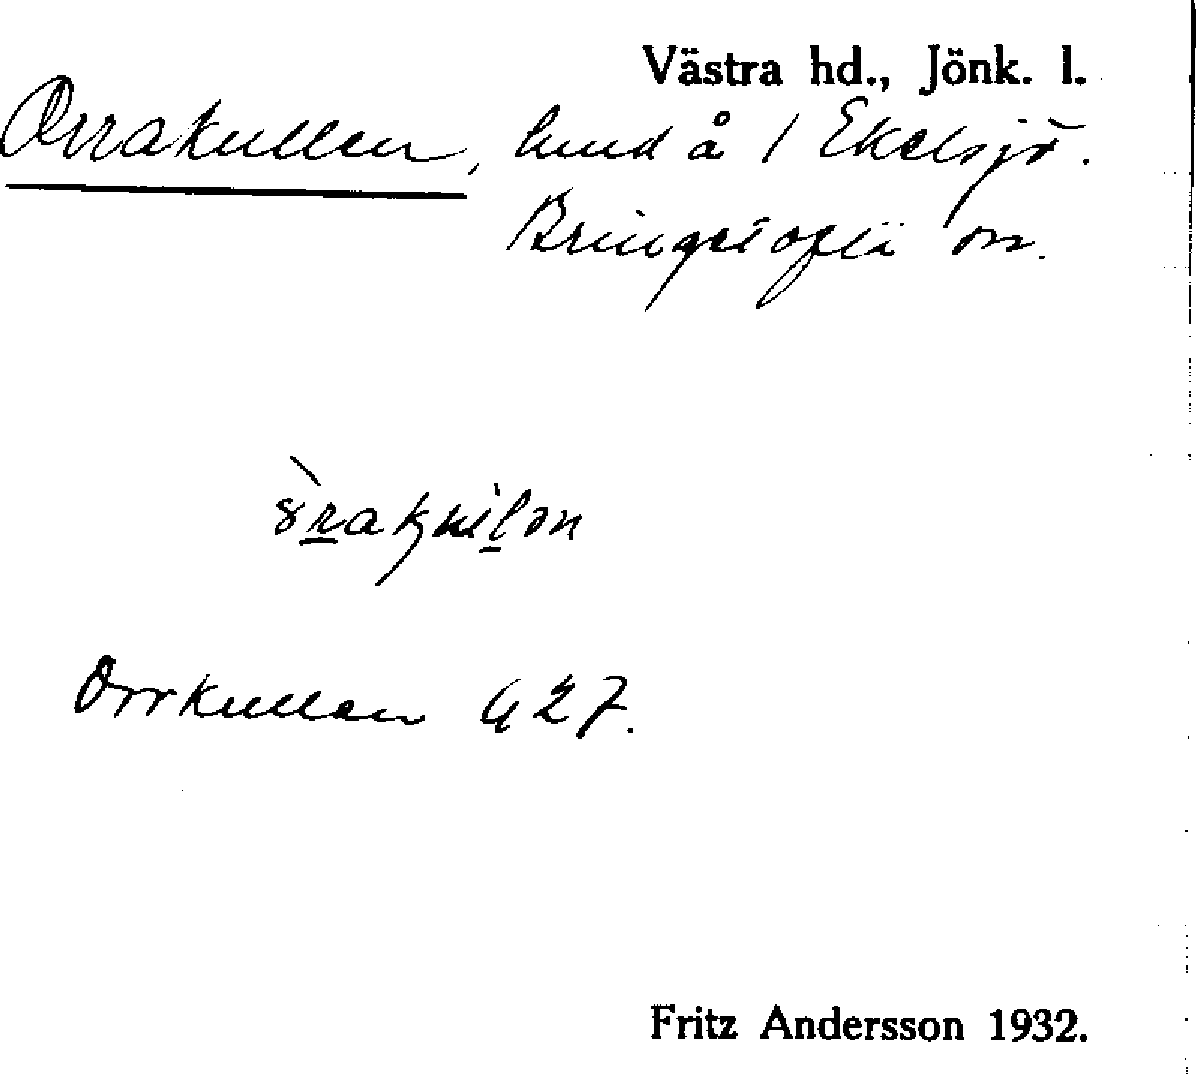 Västra hd., Jönk. l.
Orrakullen, lund å / Ekelsjö.
Bringetofta sn.
Orrkullen G 27.
Fritz Andersson 1932.